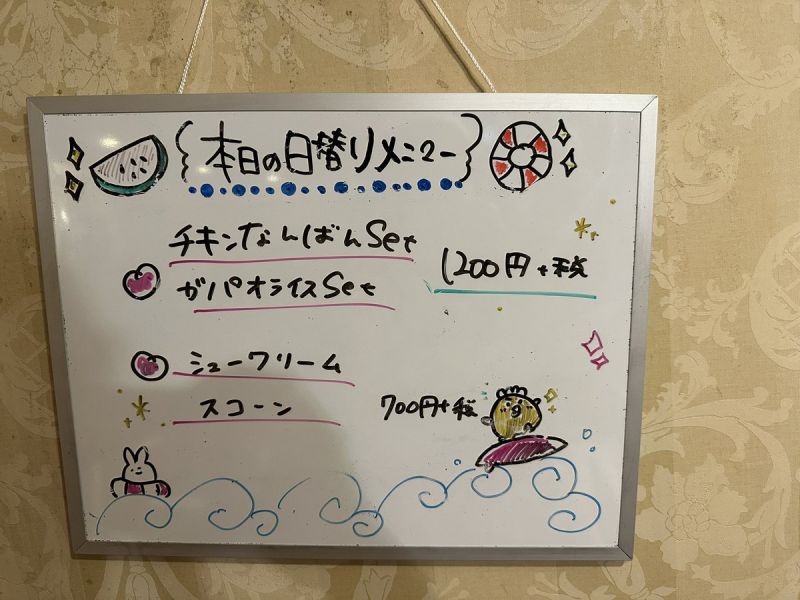 本日の日替りメニュー
チキンなんばんSet
ガパオライスSet
1200円+税
シュークリーム
スコーン
700円+税